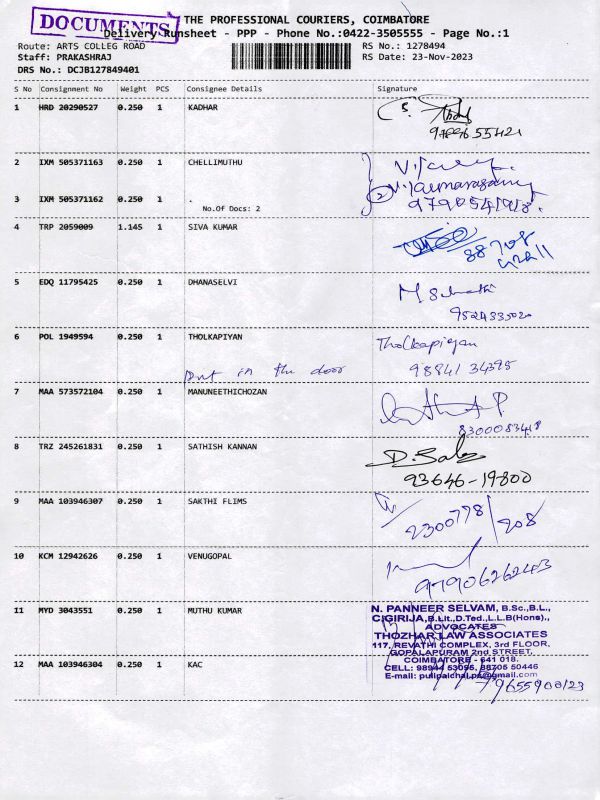 DOCUMENTS
THE PROFESSIONAL COURIERS, COIMBATORE
Delivery Runsheet - PPP - Phone No.:0422-3505555 - Page No.:1
Route: ARTS COLLEG ROAD
RS No.: 1278494
Staff: PRAKASHRAJ
RS Date: 23-Nov-2023
DRS No.: DCJB127849401
S No Consignment No Weight PCS Consignee Details Signature
1 HRD 20290527 0.250 1 KADHAR
2 IXM 505371163 0.250 1 CHELLIMUTHU
3 IXM 505371162 0.250 1 .
No.Of Docs: 2
4 TRP 2059009 1.145 1 SIVA KUMAR
5 EDQ 11795425 0.250 1 DHANASELVI
9524335020
6 POL 1949594 0.250 1 THOLKAPIYAN Tholkapiyan
put in the door 98941 34395
7 MAA 573572104 0.250 1 MANUNEETHICHOZAN
8300083418
8 TRZ 245261831 0.250 1 SATHISH KANNAN
93646-19800
9 MAA 103946307 0.250 1 SAKTHI FLIMS
10 KCM 12942626 0.250 1 VENUGOPAL
97906262403
11 MYD 3043551 0.250 1 MUTHU KUMAR
N. PANNEER SELVAM, B.Sc.,B.L.,
C.GIRIJA,B.Lit.,D.Ted.,L.L.B(Hons).,
ADVOCATES
THOZHAR LAW ASSOCIATES
117, REVATHI COMPLEX, 3rd FLOOR,
GOPALAPURAM 2nd STREET,
COIMBATORE - 641 018.
12 MAA 103946304 0.250 1 KAC
CELL: 98944 53095, 88706 50446
E-mail:
9655900123